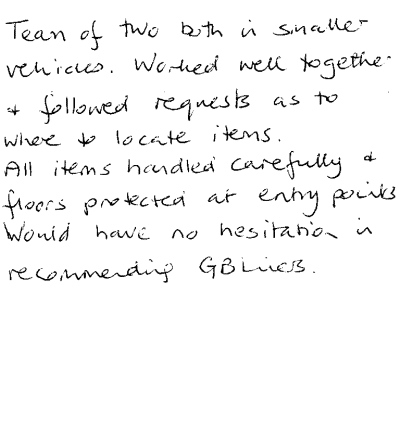 Team of two both in smaller
vehicles. Worked well together
& followed requests as to
where to locate items.
All items handled carefully &
floors protected at entry points
Would have no hesitation in
recommending GBLiners.